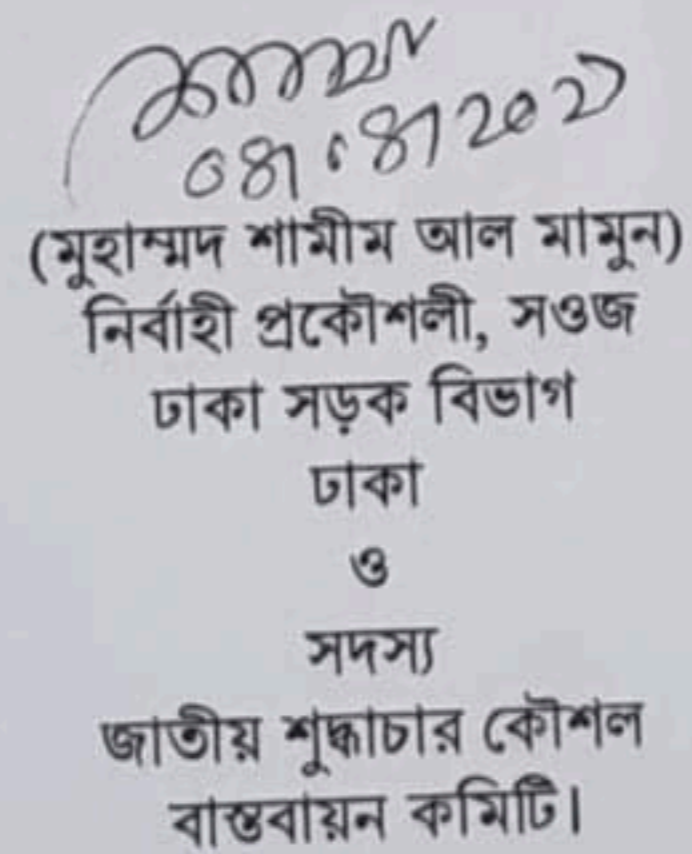 (মুহাম্মদ শামীম আল মামুন)
নির্বাহী প্রকৌশলী, সওজ
ঢাকা সড়ক বিভাগ
ঢাকা
ও
সদস্য
জাতীয় শুদ্ধাচার কৌশল
বাস্তবায়ন কমিটি।